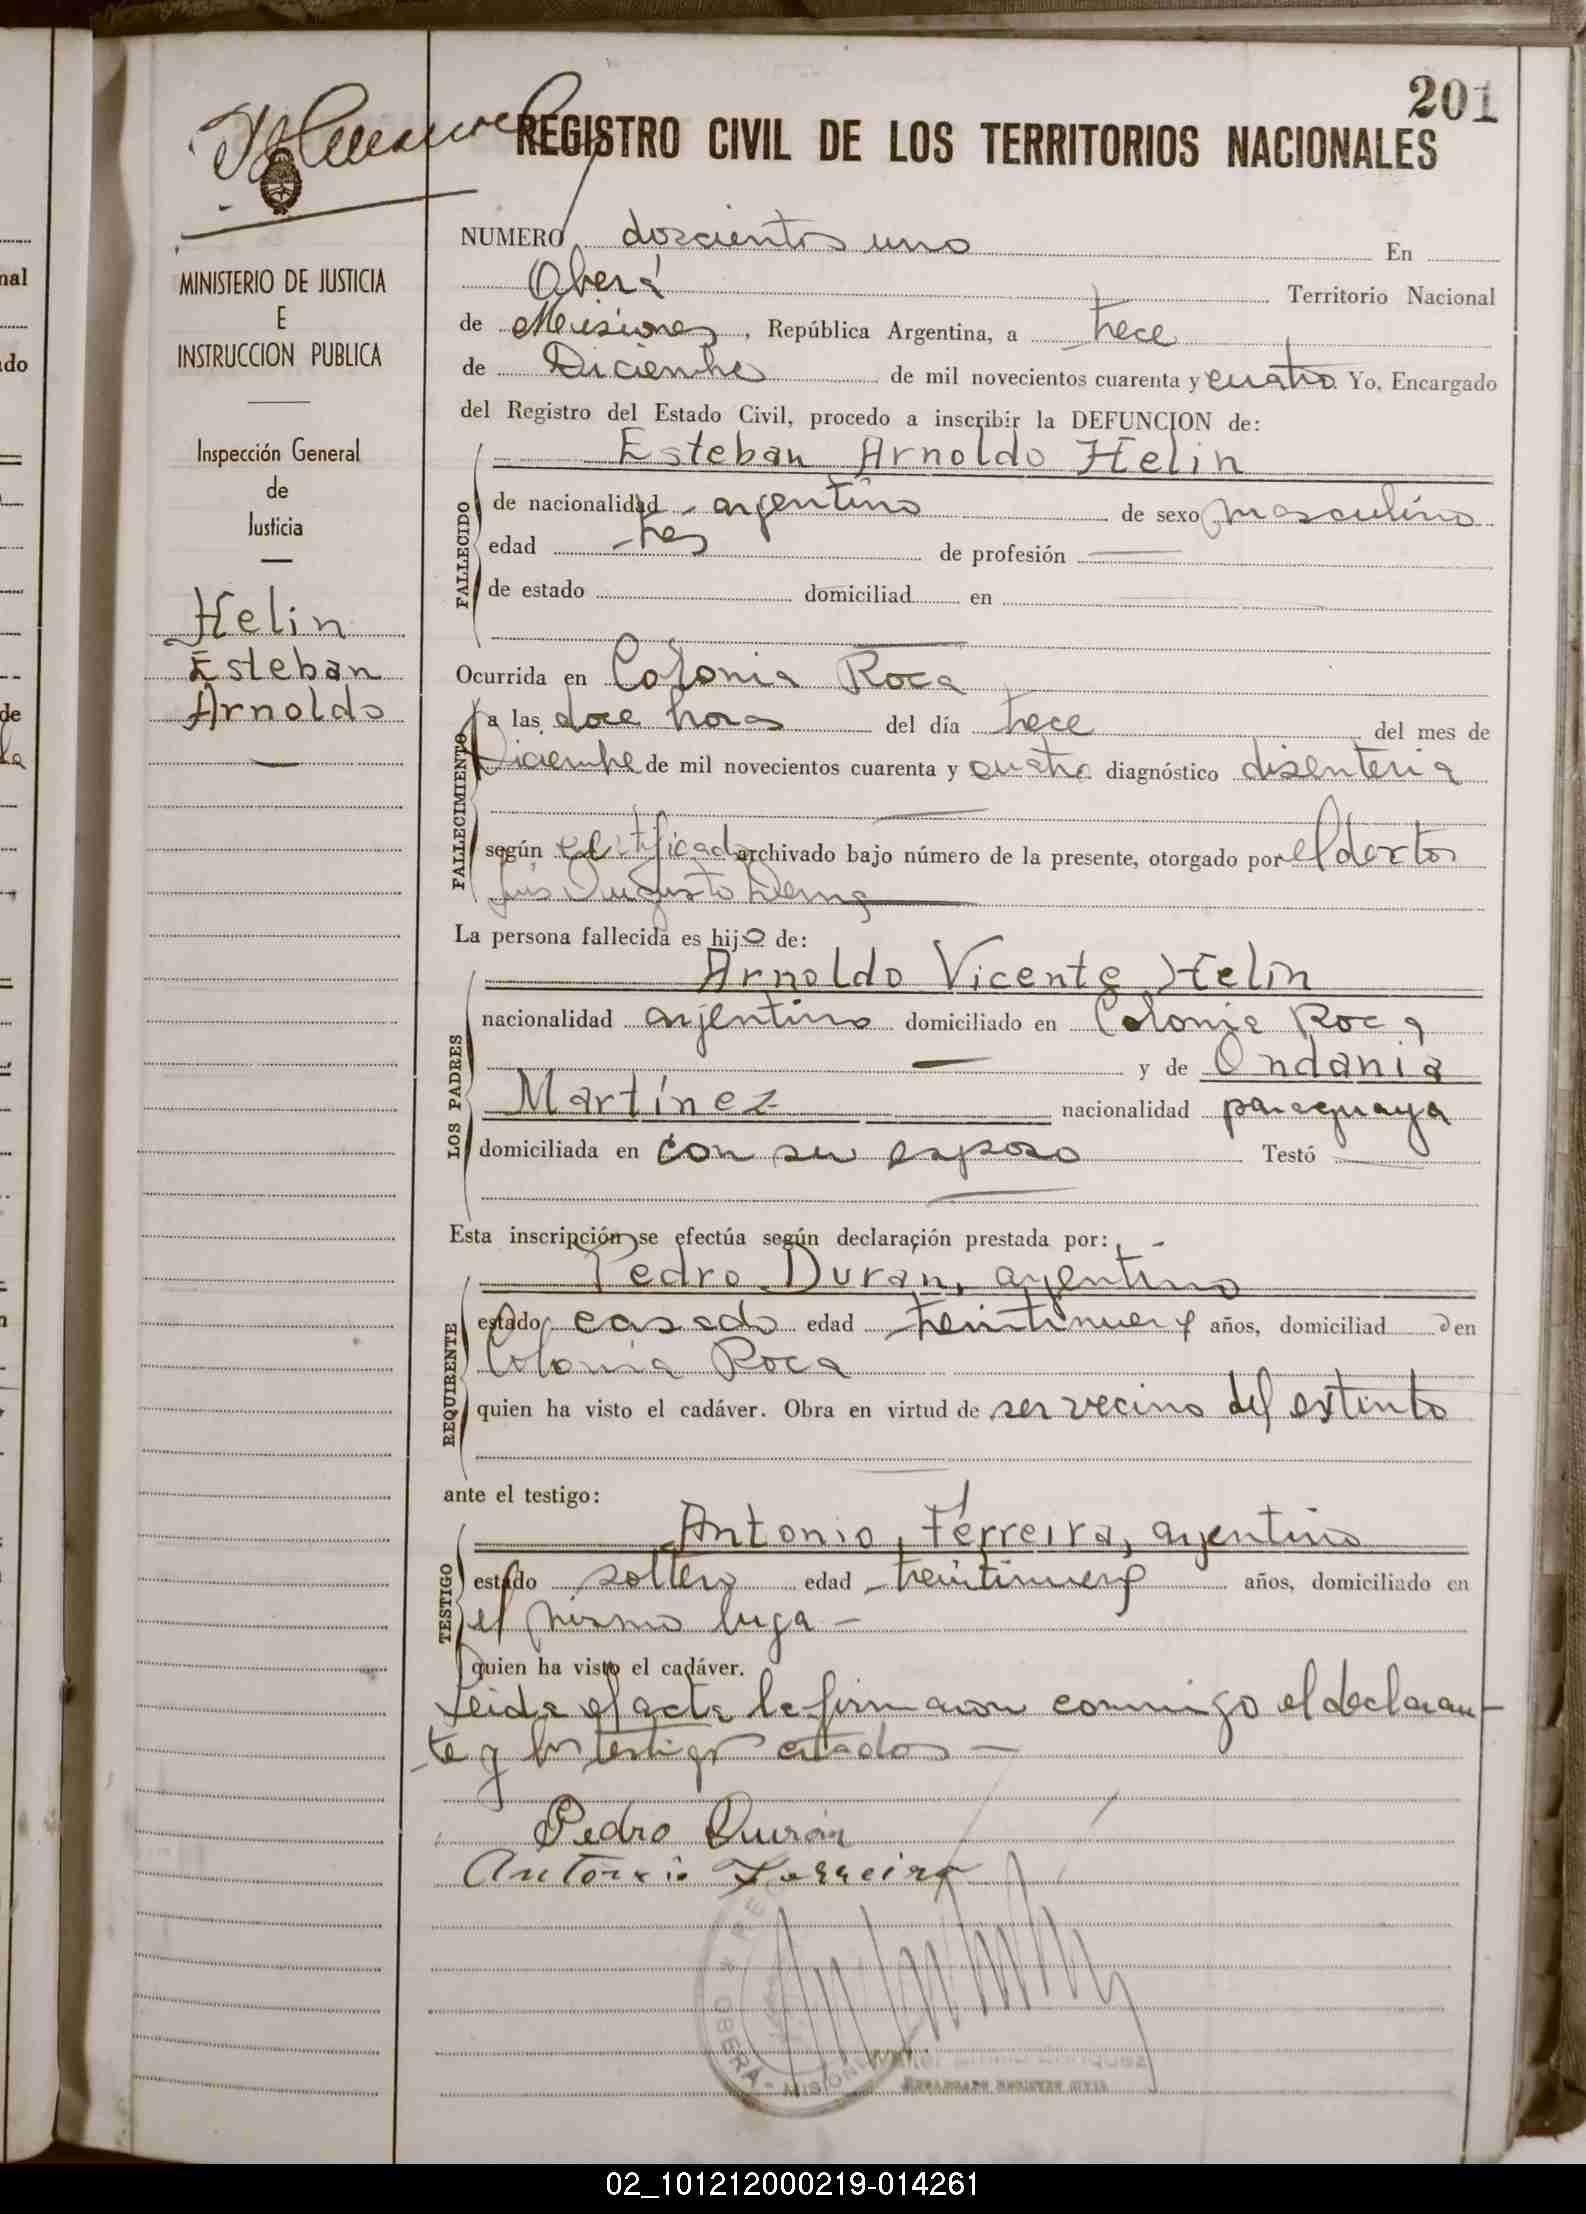 201
REGISTRO CIVIL DE LOS TERRITORIOS NACIONALES
MINISTERIO DE JUSTICIA
E
INSTRUCCION PUBLICA
Inspección General
de
Justicia
Helin
Esteban
Arnoldo
NUMERO doscientos uno En
Oberá Territorio Nacional
de Misiones, República Argentina, a trece
de Diciembre de mil novecientos cuarenta y cuatro Yo, Encargado
del Registro del Estado Civil, procedo a inscribir la DEFUNCION de:
Esteban Arnoldo Helin
FALLECIDO
de nacionalidad argentino de sexo masculino
edad tres de profesión
de estado domiciliad en
Ocurrida en Colonia Roca
FALLECIMIENTO
a las doce horas del día trece del mes de
Diciembre de mil novecientos cuarenta y cuatro diagnóstico disenteria
según certificado archivado bajo número de la presente, otorgado por el doctor
Luis Augusto
La persona fallecida es hijo de:
Arnoldo Vicente Helin
LOS PADRES
nacionalidad argentino domiciliado en Colonia Roca
y de Ondania
Martínez nacionalidad paraguaya
domiciliada en con su esposo Testó
Esta inscripción se efectúa según declaración prestada por:
Pedro Duran, argentino
REQUIRENTE
estado casado edad treintinueve años, domiciliad o en
Colonia Roca
quien ha visto el cadáver. Obra en virtud de ser vecino del extinto
ante el testigo:
Antonio Ferreira, argentino
TESTIGO
estado soltero edad treintinueve años, domiciliado en
el mismo luga -
quien ha visto el cadáver.
Leida el acta la firmaron conmigo el declaran-
te y los testigos citados -
Pedro Durán
Antonio Ferreira
OBERÁ - MISIONES
ENCARGADO REGISTRO CIVIL
02_101212000219-014261